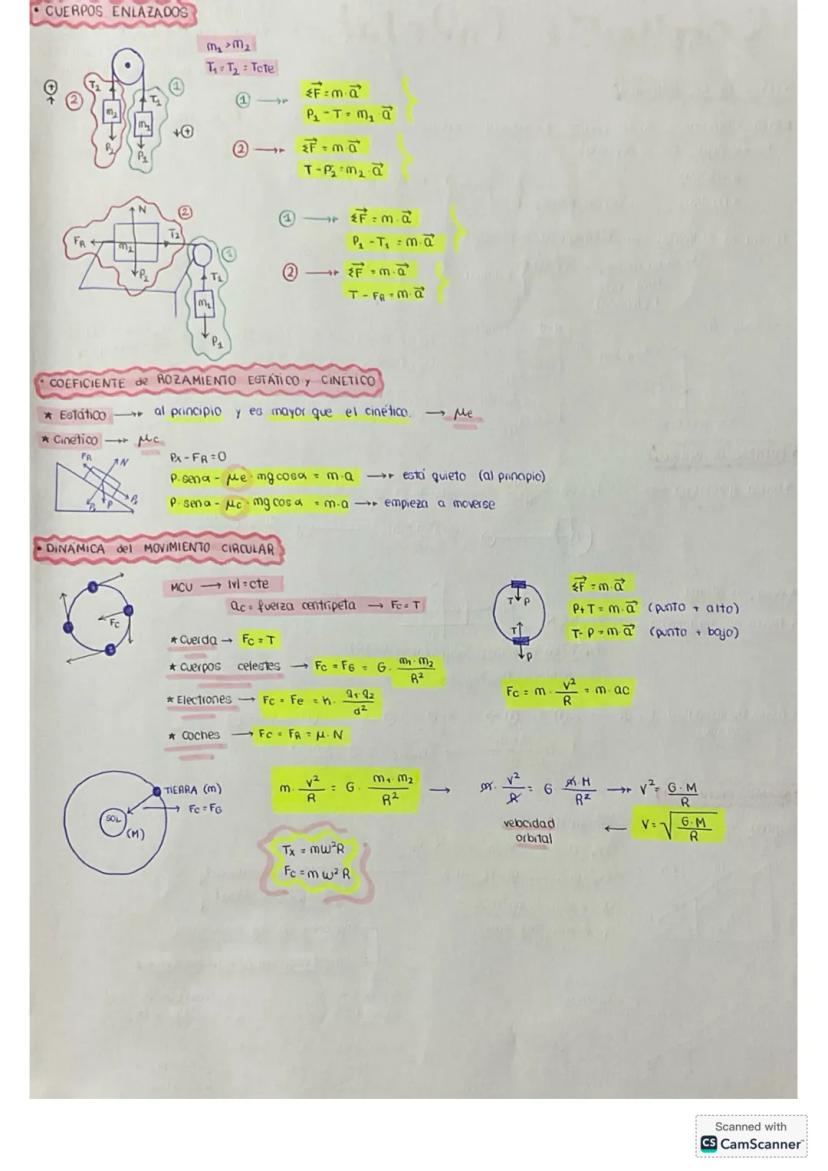 • CUERPOS ENLAZADOS
m₁ > m₂
T₁ = T₂ = Tcte
① → ΣF = m·a
P₁ - T = m₁·a
② → ΣF = m·a
T - P₂ = m₂·a
T₂ T₁ ①
② m₂ m₁
P₂ P₁
N ②
FR m₂ T₂ ①
P₂ T₁
m₁
P₁
① → ΣF = m·a
P₁ - T₁ = m·a
② → ΣF = m·a
T - FR = m·a
• COEFICIENTE de ROZAMIENTO ESTÁTICO y CINÉTICO
* Estático → al principio y es mayor que el cinético. → μe
* Cinético → μc
FR N
P
Px - FR = 0
P·senα - μe mg cosα = m·a → está quieto (al principio)
P·senα - μc mg cosα = m·a → empieza a moverse
• DINÁMICA del MOVIMIENTO CIRCULAR
MCU → |v| = cte
ac = fuerza centrípeta → Fc = T
Fc
* Cuerda → Fc = T
* Cuerpos celestes → Fc = FG = G· m₁·m₂ / R²
* Electrones → Fc = Fe = K· q₁·q₂ / d²
* Coches → Fc = FR = μ·N
T P
T
P
ΣF = m·a
P + T = m·a (punto + alto)
T - P = m·a (punto + bajo)
Fc = m· v²/R = m·ac
TIERRA (m)
Fc = FG
SOL
(M)
m· v²/R = G· m₁·m₂ / R² → m· v²/R = G· m·M / R² → v² = G·M / R
velocidad orbital ← V = √(G·M / R)
Tx = mω²R
Fc = mω²R
Scanned with
CS CamScanner